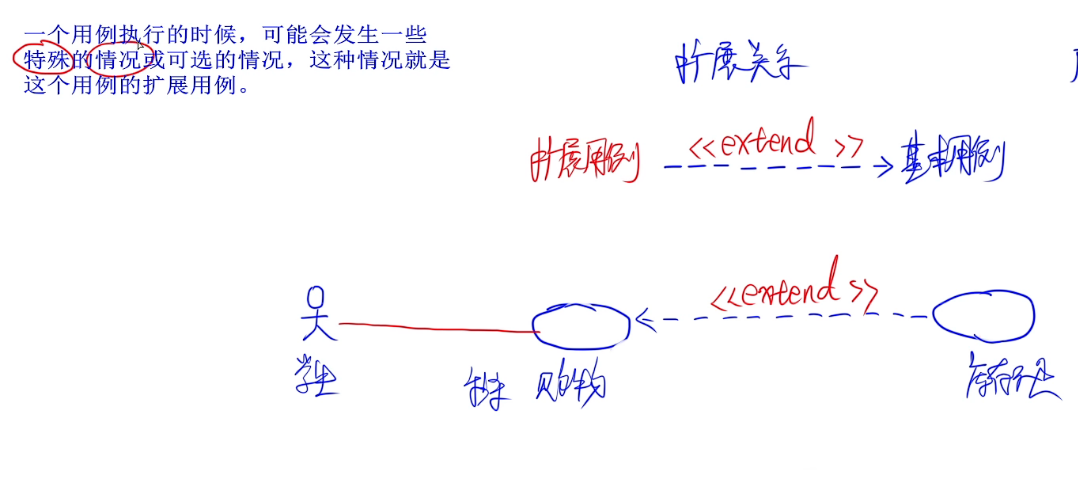 一个用例执行的时候，可能会发生一些
特殊的情况或可选的情况，这种情况就是
这个用例的扩展用例。
扩展关系
扩展用例 <<extend>> 基本用例
<<extend>>
学生 购物 库存不足